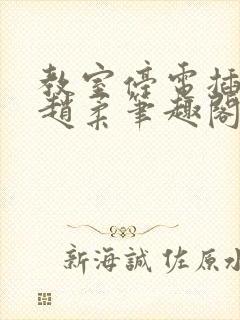 教室停電插
趙柔筆趣閣
新海誠 佐原水